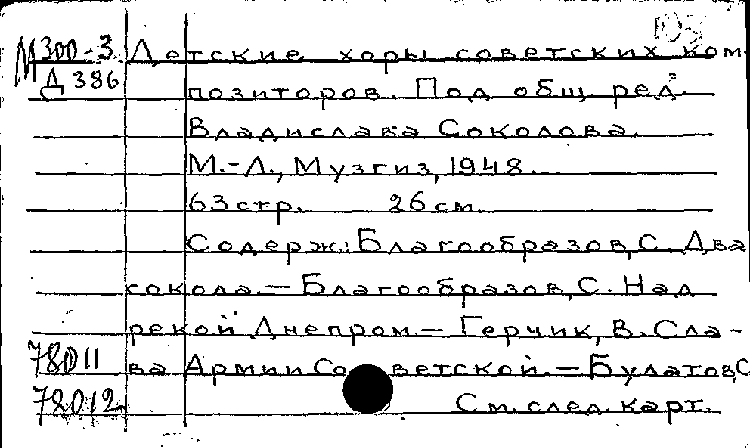 М300-3 Детские хоры советских ком-
Д 386 позиторов. Под общ. ред.
Владислава Соколова.
М.-Л., Музгиз, 1948.
63 стр. 26 см.
Содерж.: Благообразов, С. Два
сокола. — Благообразов, С. Над
рекой Днепром. — Герчик, В. Сла-
78011 ва Армии Советской. — Булатов, С
78012 См. след. карт.